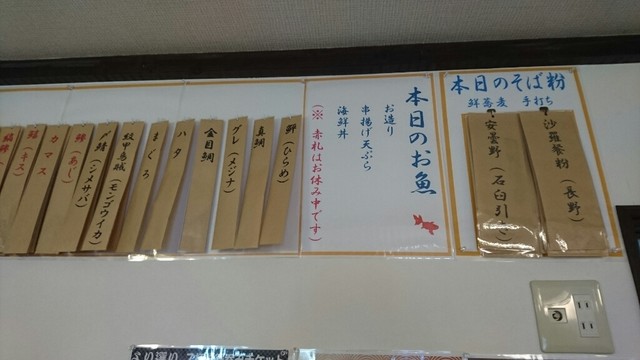 本日のそば粉
鮮蕎麦 手打ち
沙羅そば粉(長野)
安曇野(石臼引き)
本日のお魚
お造り
串揚げ天ぷら
海鮮丼
(※ 赤札はお休み中です)
鮃(ひらめ)
真鯛
グレ(メジナ)
金目鯛
ハタ
まぐろ
紋甲烏賊(モンゴウイカ)
〆鯖(シメサバ)
鯵(あじ)
カマス
鱚(キス)